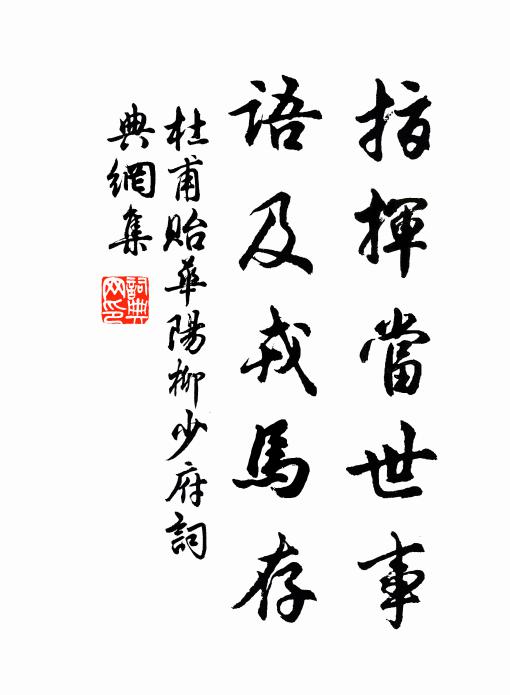 指揮當世事
語及戎馬存
杜甫貽華陽柳少府詞
典網集
詞典网印